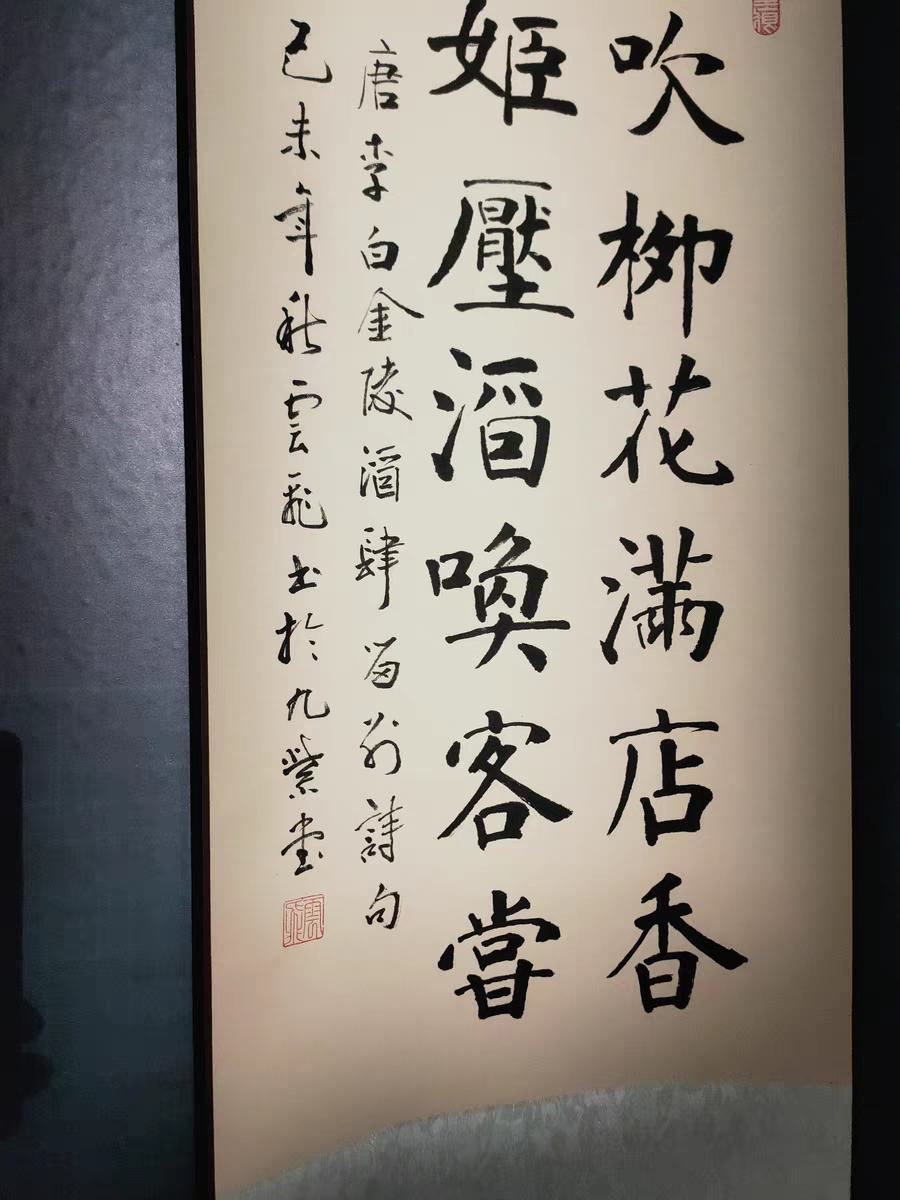 吹柳花滿店香
姬壓酒喚客嘗
唐李白金陵酒肆留別詩句
己未年秋雲飛书於九紫堂